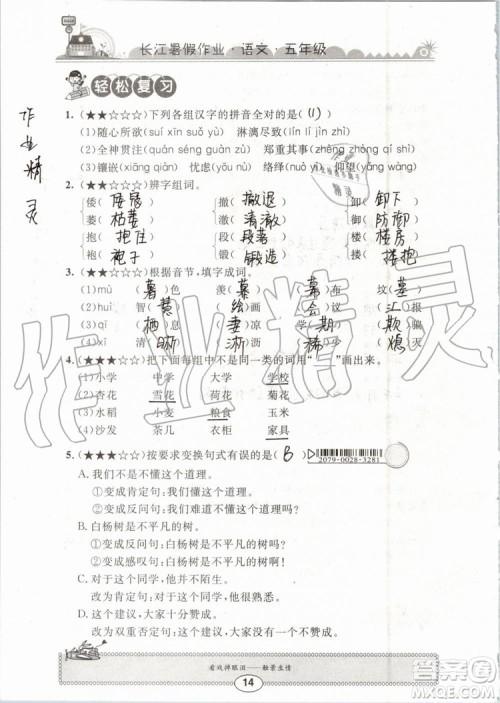 长江暑假作业·语文·五年级
轻松复习
作业精灵
1. (★★☆☆☆)下列各组汉字的拼音全对的是( (1) )
(1)随心所欲(suí xīn suǒ yù) 淋漓尽致(lín lí jìn zhì)
(2)全神贯注(quán shén guàn zhù) 郑重其事(zhèng zhòng qí shì)
(3)镶嵌(xiāng qiàn) 忧虑(yōu lǜ) 络绎(luò yì) 仰望(yǎng wàng)
2. (★★☆☆☆)辨字组词。
倭(倭寇) 撤(撤退) 卸(卸下)
萎(枯萎) 澈(清澈) 御(防御)
抱(抱住) 段(段落) 楼(楼房)
袍(袍子) 锻(锻造) 搂(搂抱)
3. (★★★☆☆)根据音节,填字成词。
(1)mù 暮色 羡慕 幕布 坟墓
(2)huì 智慧 绘画 会议 词汇
(3)qī 栖息 凄凉 漆 欺骗
(4)xī 清晰 稀少 熄灭
4. (★★★☆☆)把下面每组中不是同一类的词用“__”画出来。
(1)小学 中学 大学 学校
(2)杏花 雪花 荷花 菊花
(3)水稻 小麦 粮食 玉米
(4)沙发 茶几 衣柜 家具
5. (★★★☆☆)按要求变换句式有误的是( B )
2079-0028-3281
A. 我们不是不懂这个道理。
①变成肯定句:我们懂这个道理。
②变成反问句:我们难道不懂这个道理吗?
B. 白杨树是不平凡的树。
①变成反问句:白杨树是不平凡的树吗?
②变成感叹句:白杨树是不平凡的树哇!
C. 对于这个同学,他并不陌生。
改为肯定句:对于这个同学,他很熟悉。
D. 这个建议,大家十分赞成。
改为双重否定句:这个建议,大家不得不赞成。
看戏掉眼泪——触景生情
14
作业精灵
答案圈
MXQE.COM